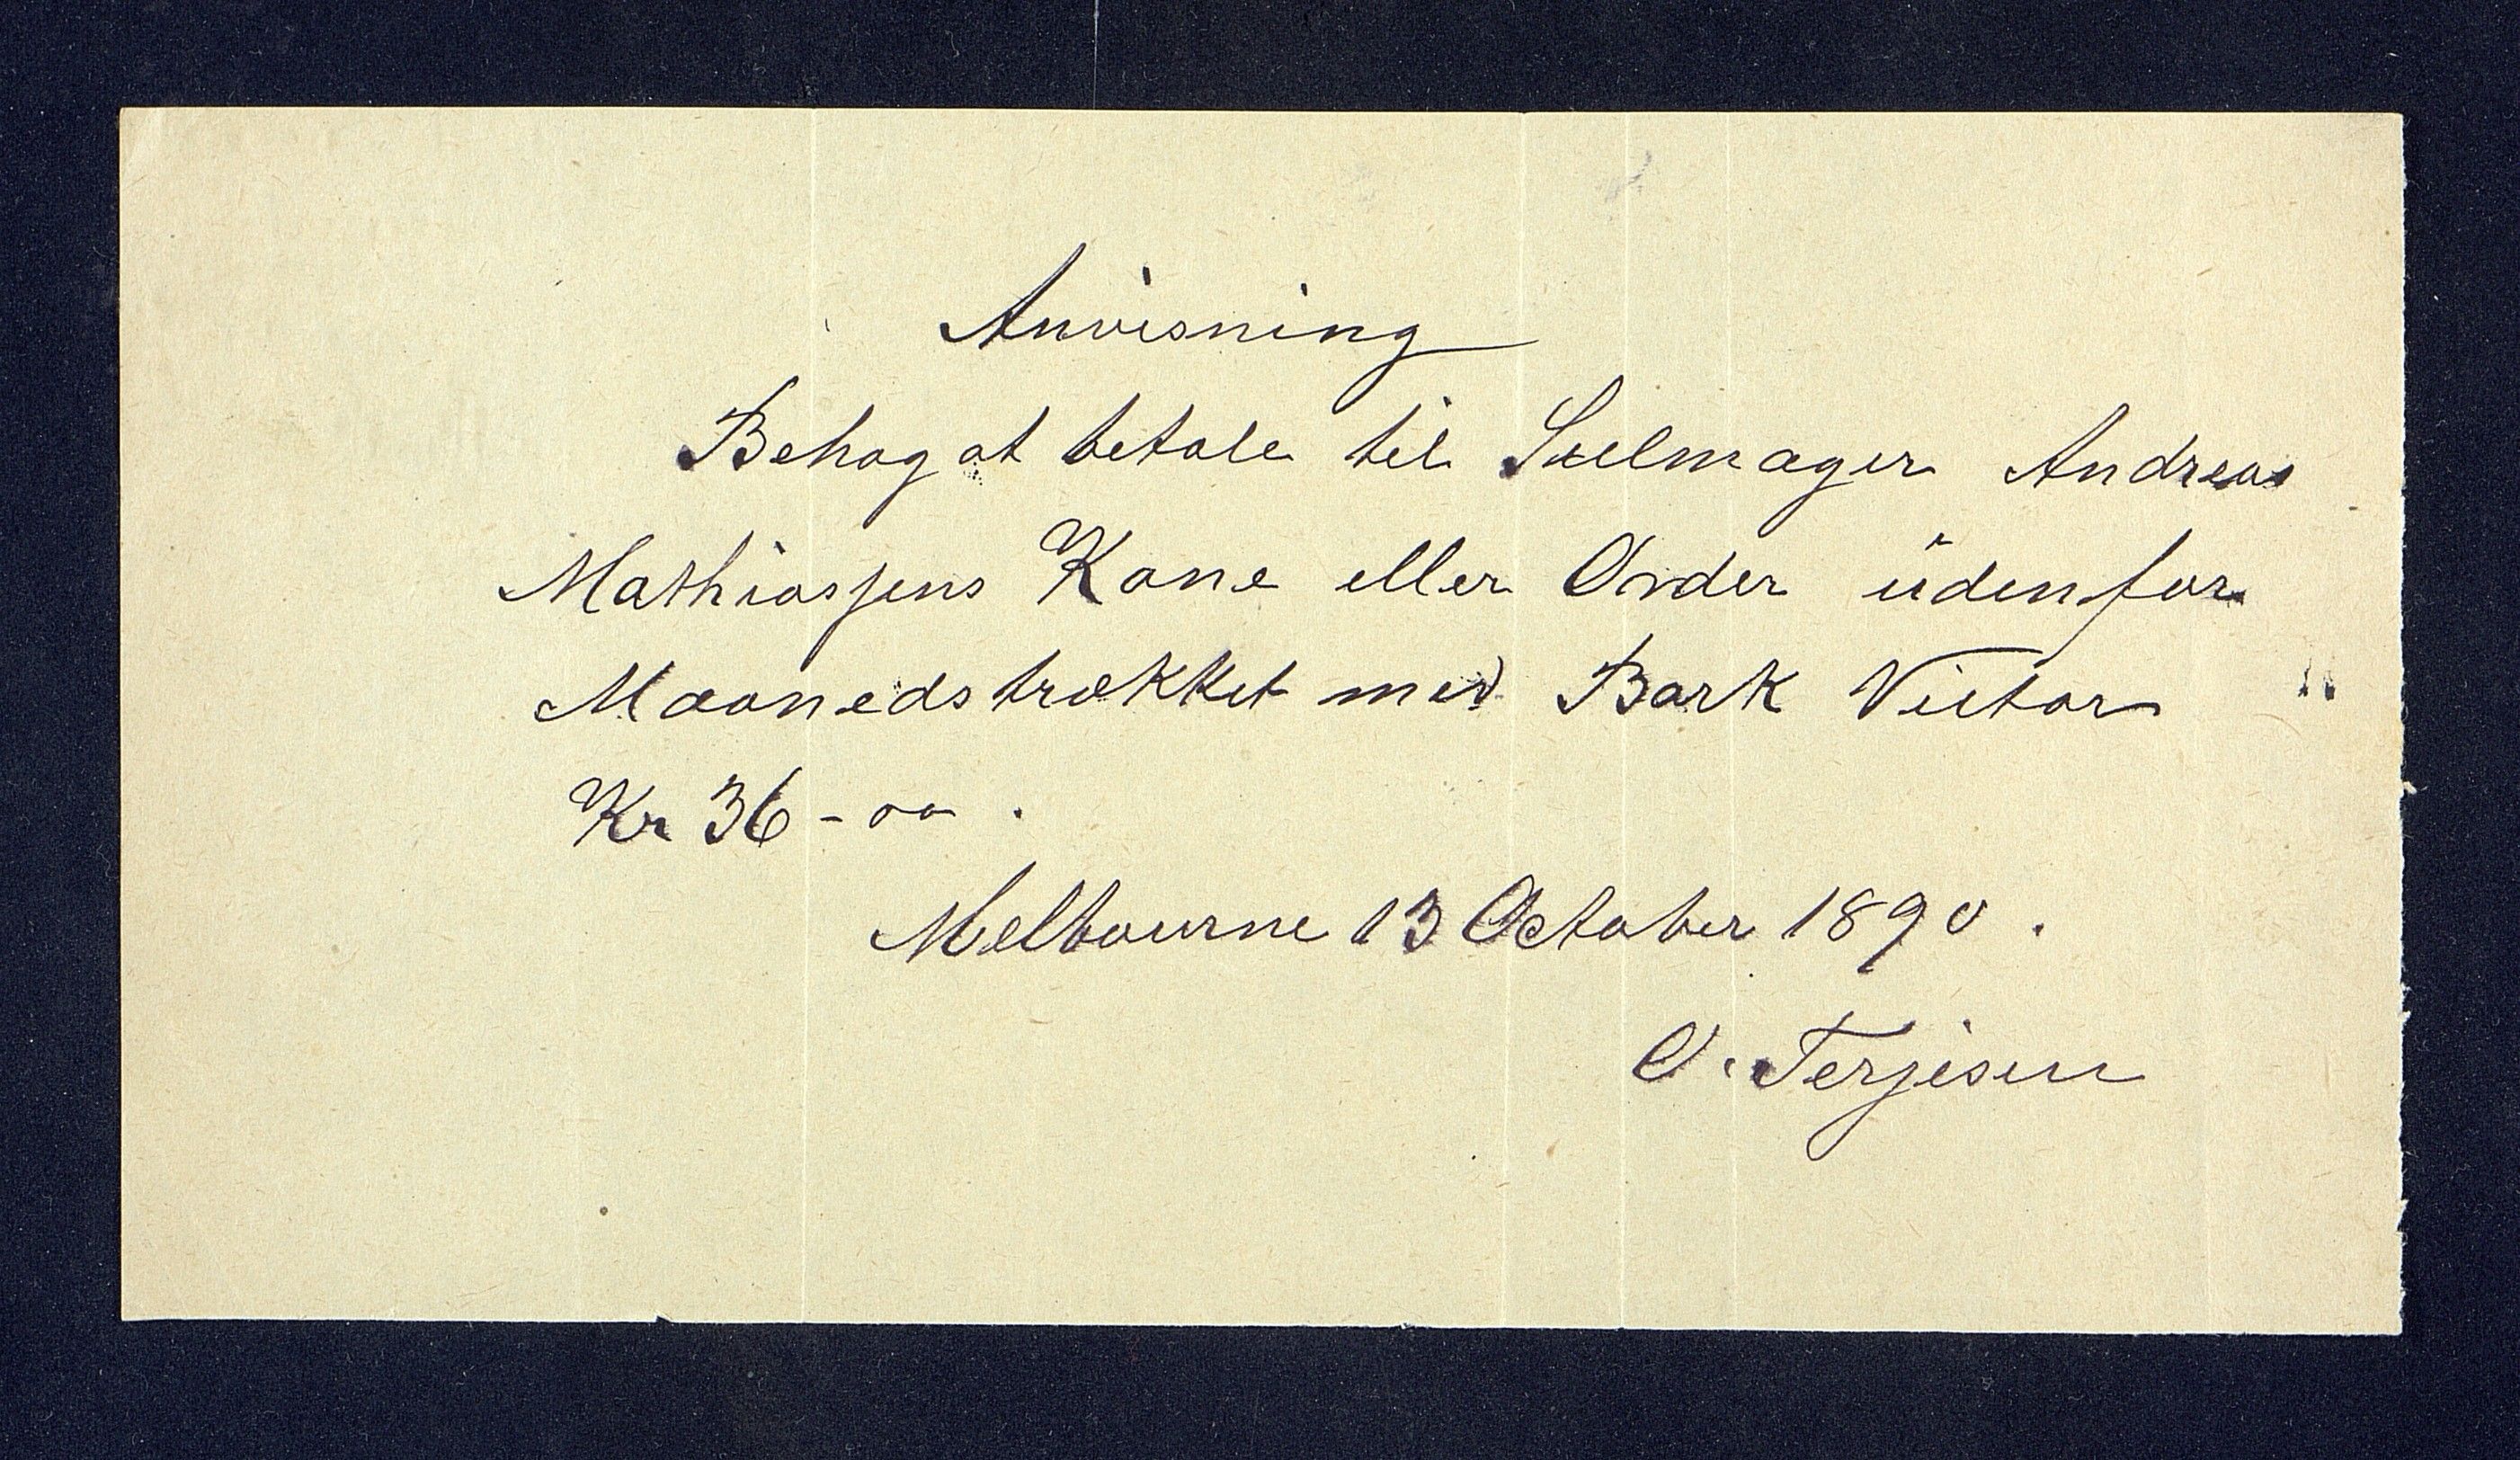 Anvisning
Behag at betale til Seelmager Andreas
Mathiassens Kone eller Order üdenfor
Maanedstrækket med Bark Victor
Kr 36 - oo .
Melbourne 13 October 1890 .
O. Terjesen